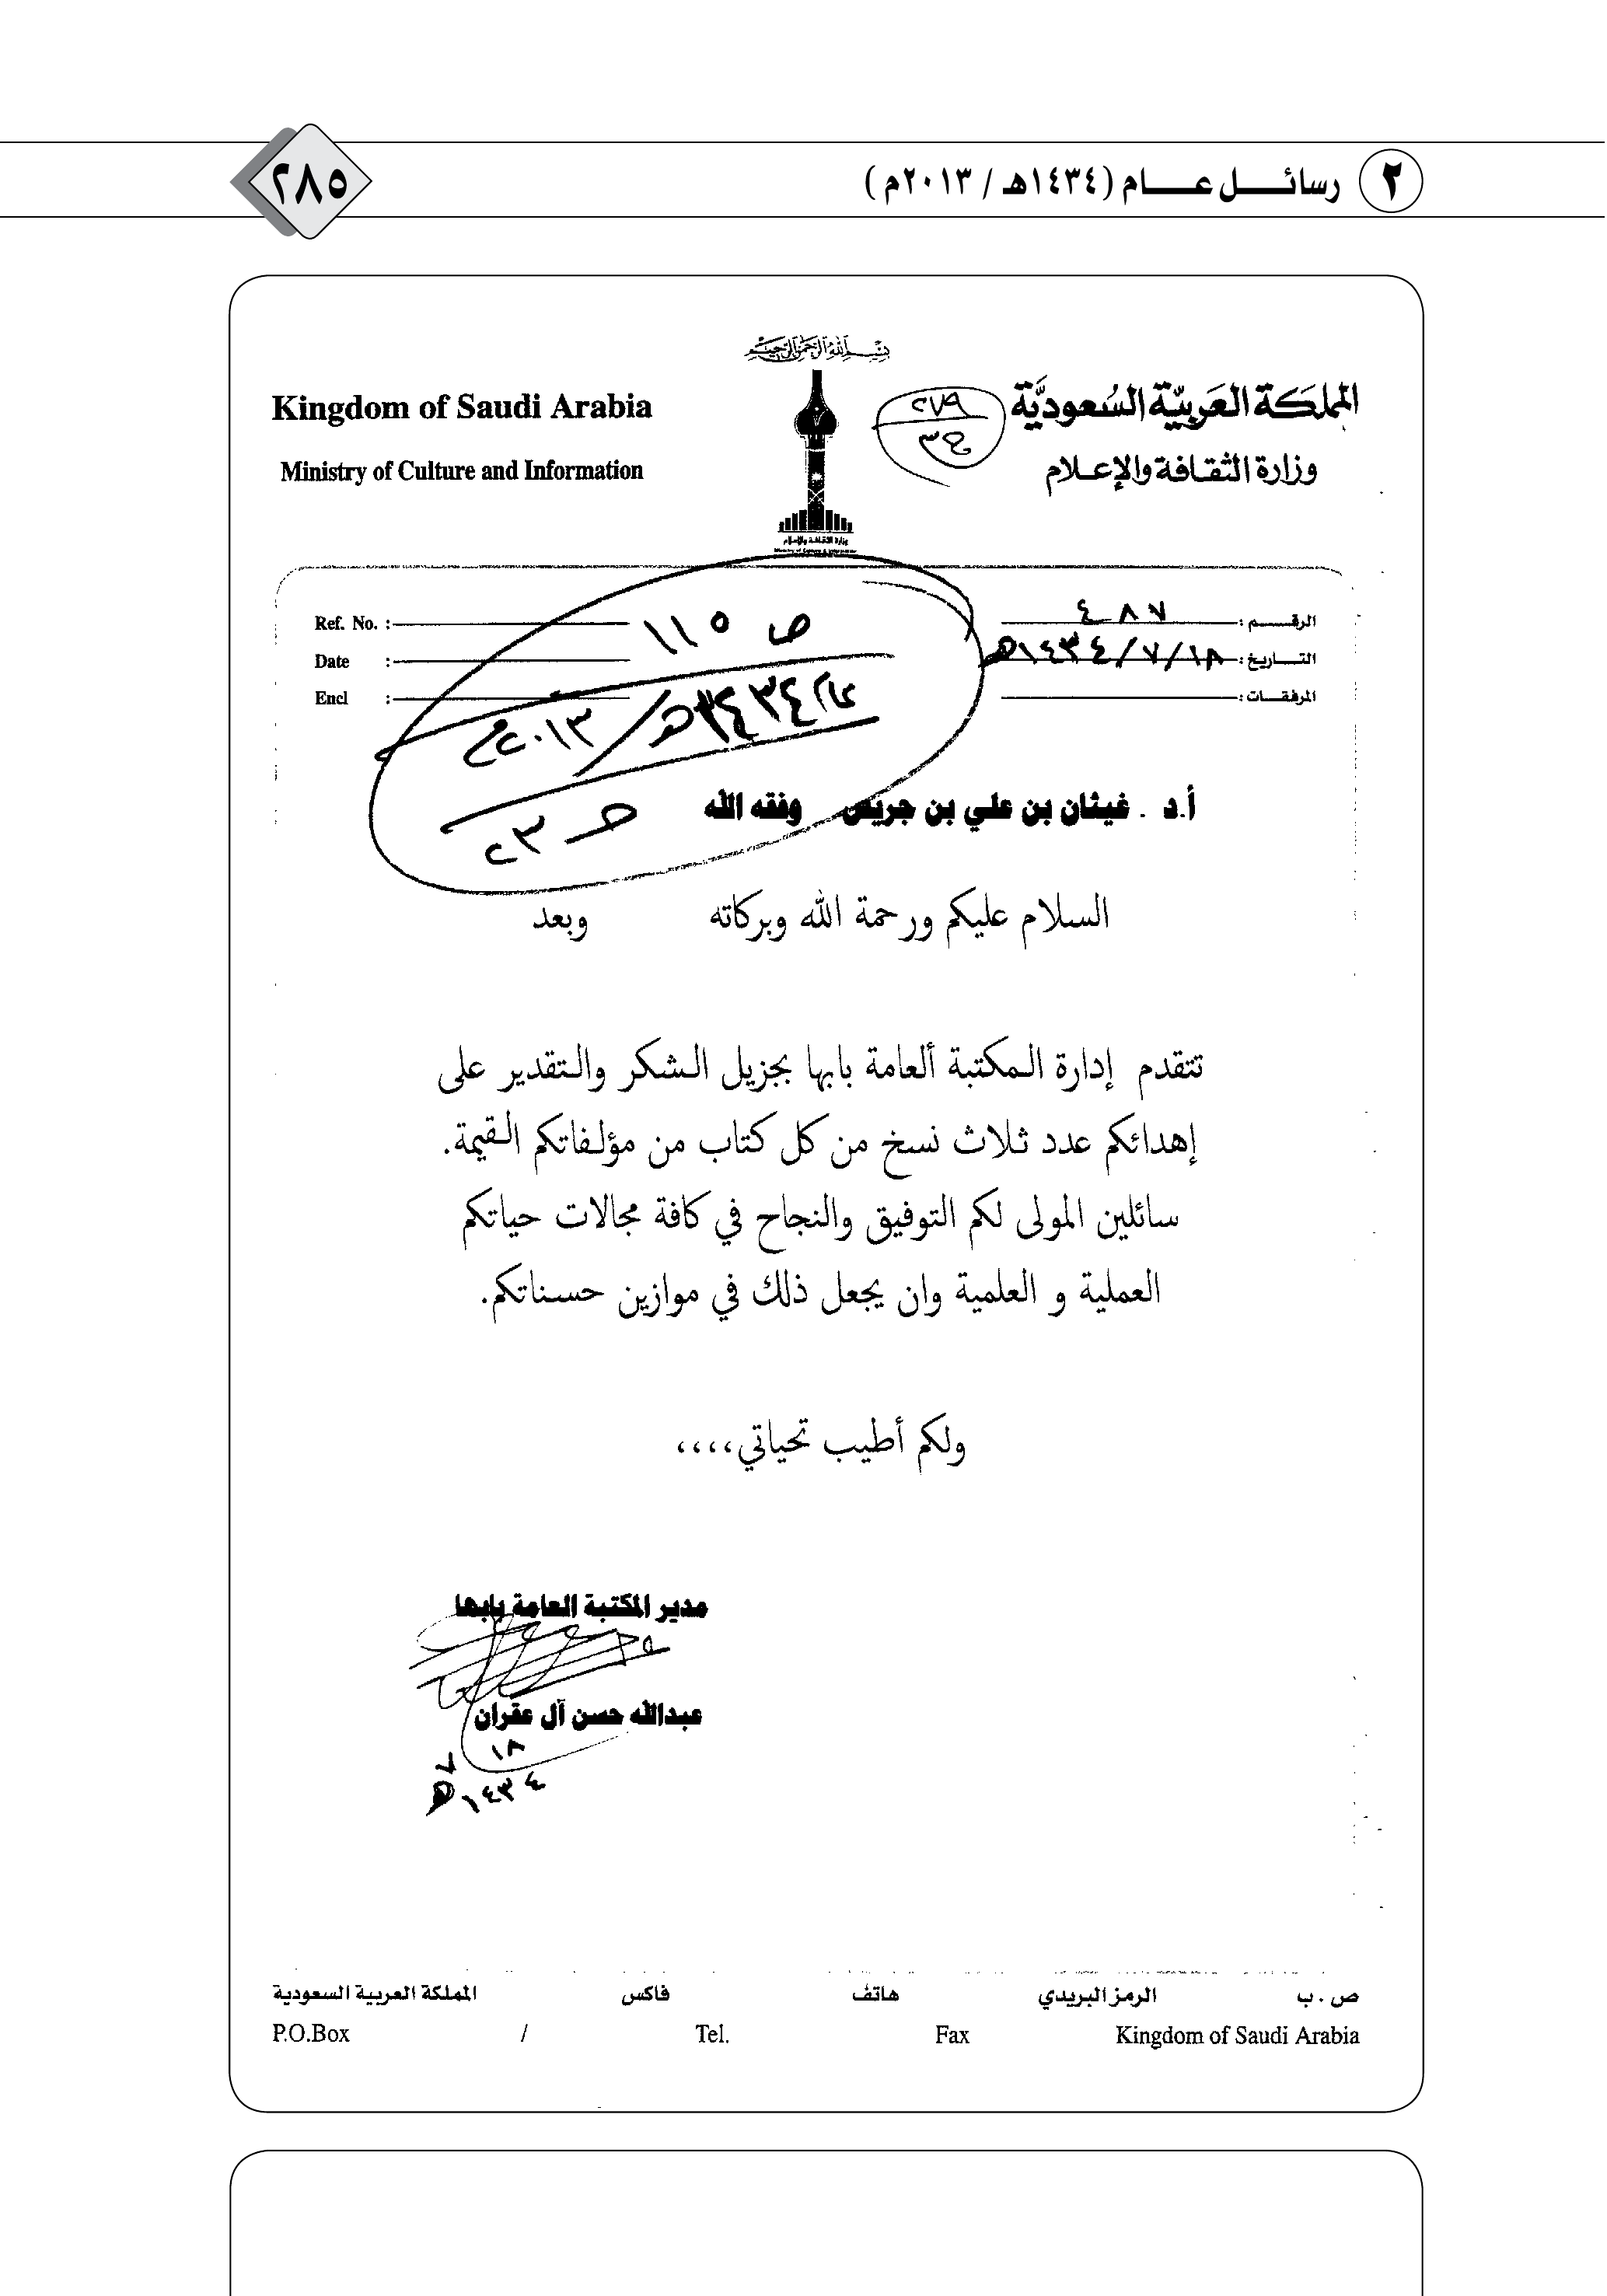 ٢ رسائل عام (١٤٣٤هـ / ٢٠١٣م)
٢٨٥
بسم الله الرحمن الرحيم
المملكة العربية السعودية
وزارة الثقافة والإعلام
Kingdom of Saudi Arabia
Ministry of Culture and Information
٢٧٩
وزارة الثقافة والإعلام
Ministry of Culture & Information
الرقم : ٤٨٧
التاريخ : ١٨/٧/١٤٣٤هـ
المرفقات :
Ref. No. :
Date :
Encl :
ص ١١٥
١٤٣٤هـ/٢٠١٣م
ح ٢٣
أ.د . غيثان بن علي بن جريس وفقه الله
السلام عليكم ورحمة الله وبركاته وبعد
تتقدم إدارة المكتبة ألعامة بابها بجزيل الشكر والتقدير على
إهدائكم عدد ثلاث نسخ من كل كتاب من مؤلفاتكم القيمة.
سائلين المولى لكم التوفيق والنجاح في كافة مجالات حياتكم
العملية و العلمية وان يجعل ذلك في موازين حسناتكم.
ولكم أطيب تحياتي،،،،
مدير المكتبة العامة بابها
عبدالله حسن آل عقران
١٨
٧
١٤٣٤هـ
ص . ب الرمز البريدي هاتف فاكس المملكة العربية السعودية
P.O.Box / Tel. Fax Kingdom of Saudi Arabia